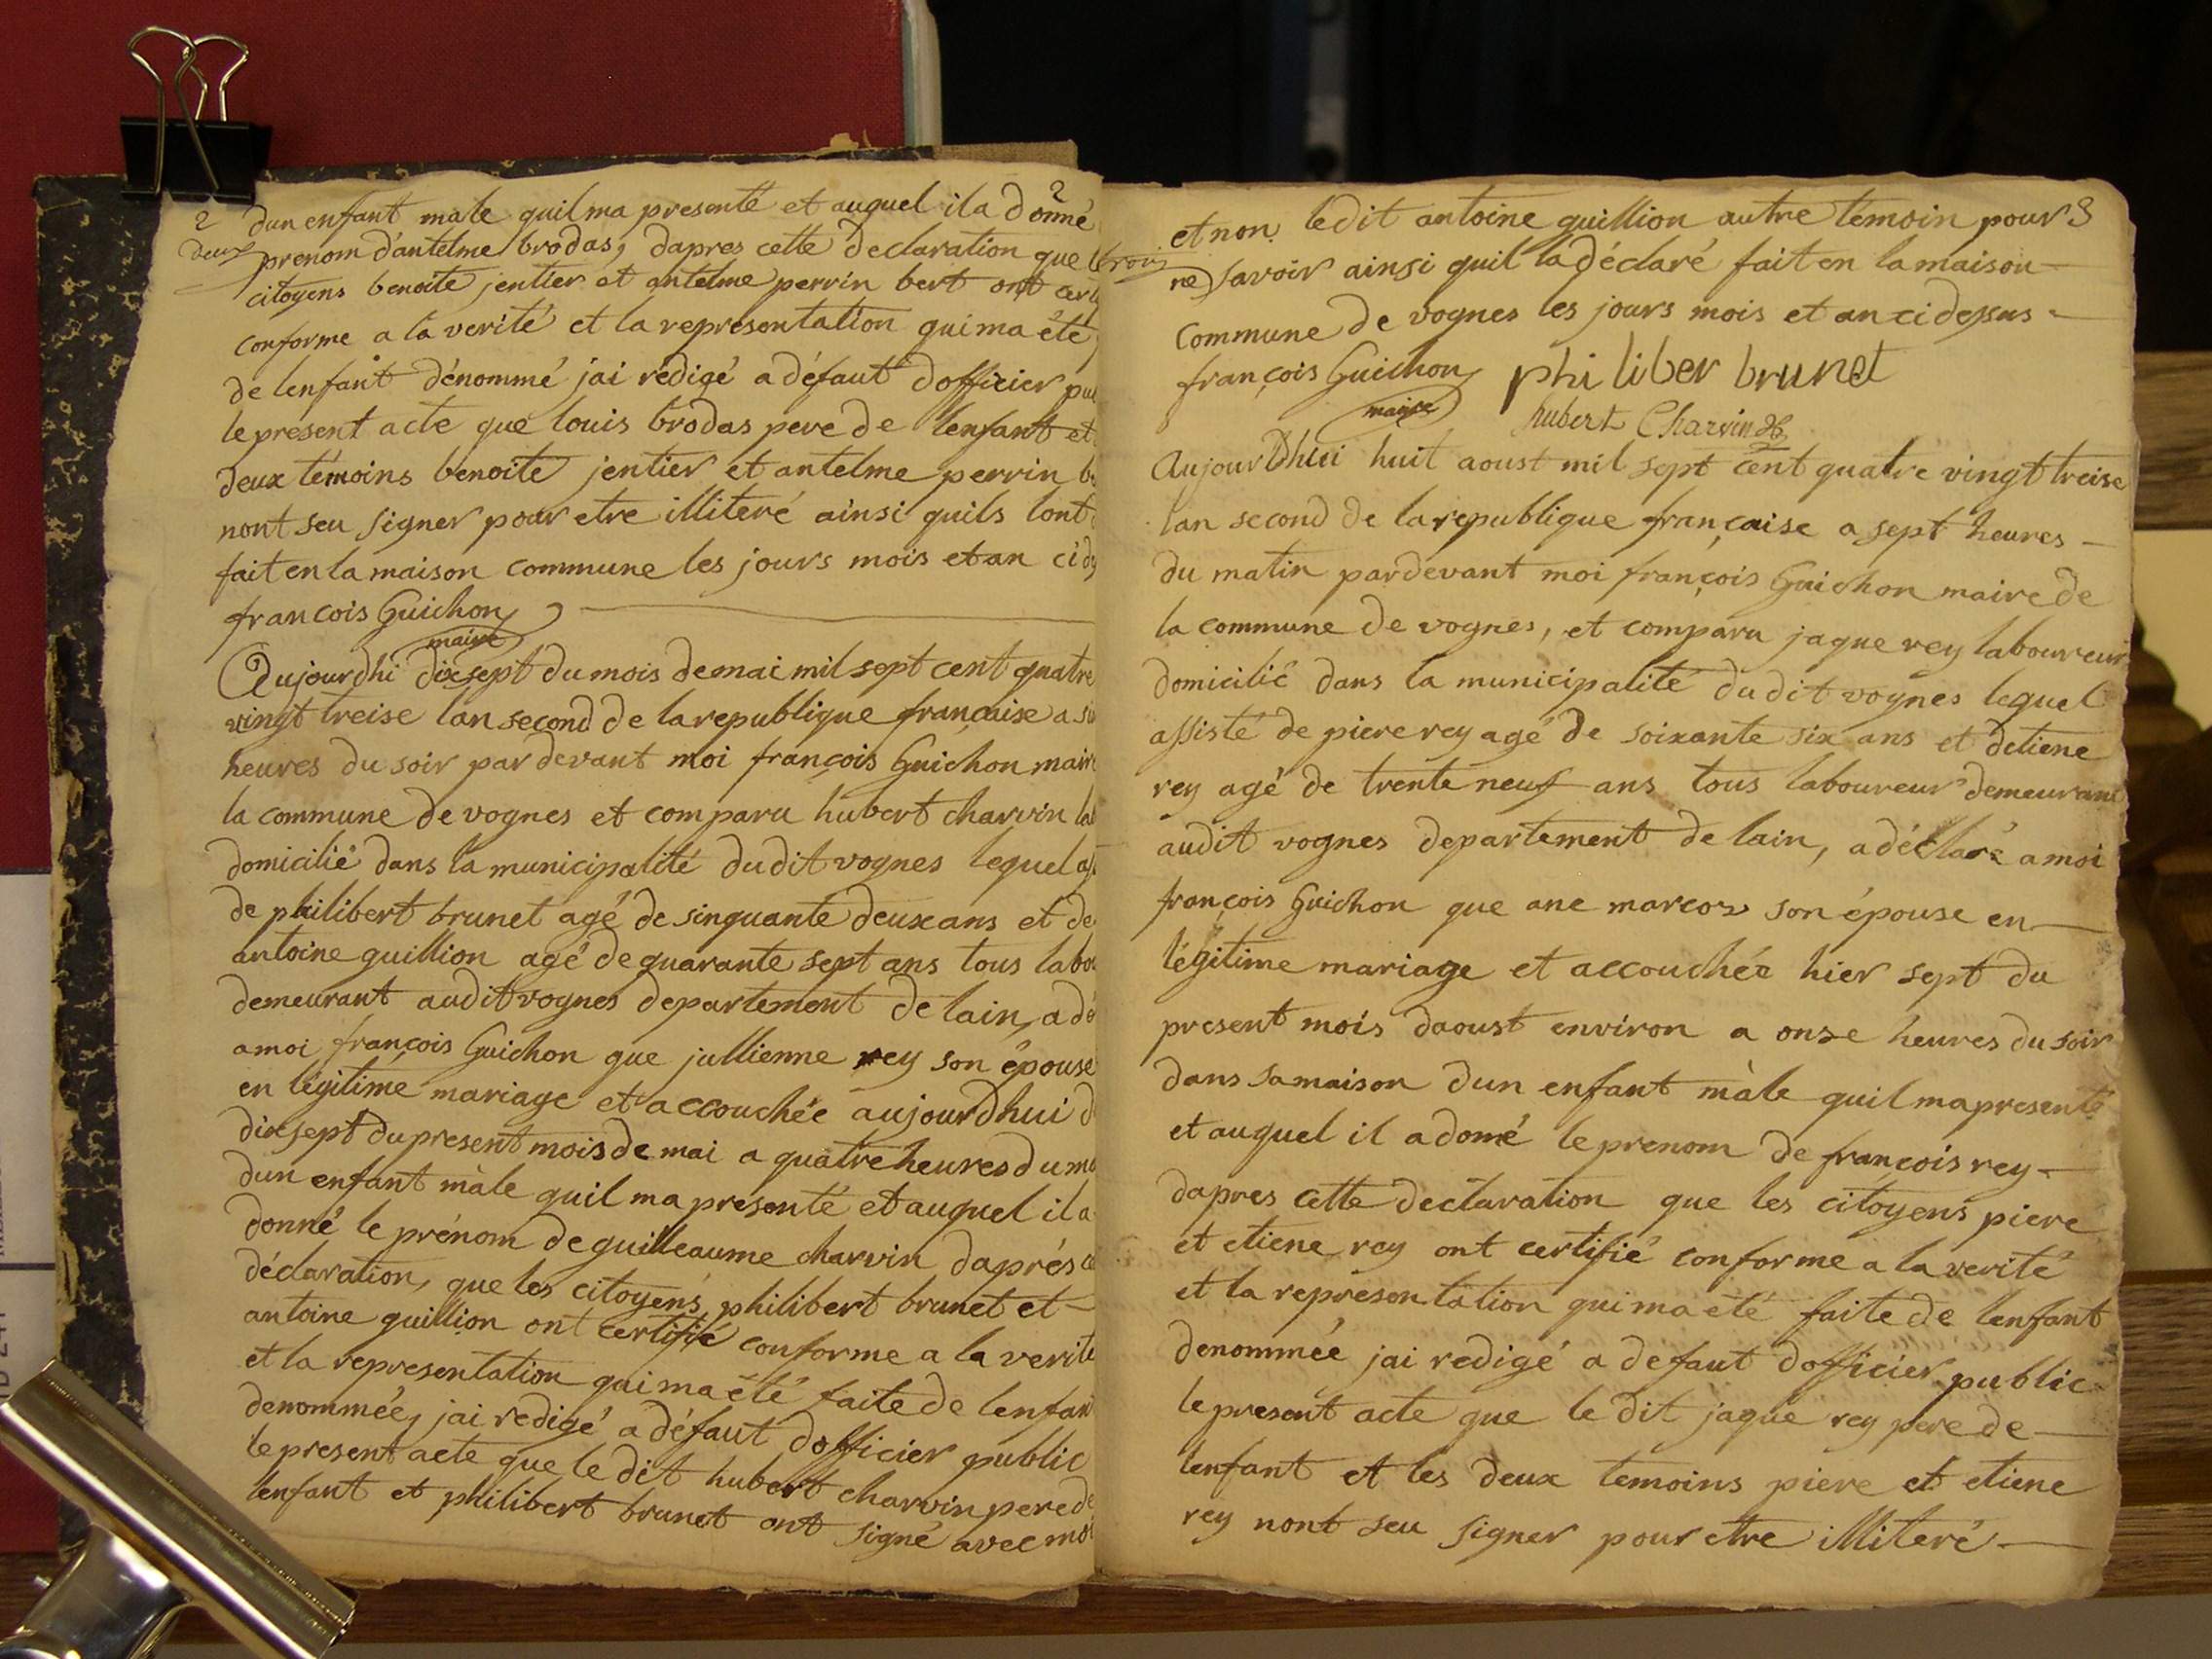 2
2 dun enfant male quil ma presenté et auquel il a donné
deux prenom d'antelme brodas, dapres cette declaration que le
citoyens benoite jentier et antelme perrin bert ont
conforme a la verité et la representation qui ma été
de lenfant dénommé jai redigé a défaut dofficier
le present acte que louis brodas pere de lenfant et
deux témoins benoite jentier et antelme perrin
nont seu signer pour etre illiteré ainsi quils lont
fait en la maison commune les jours mois et an
françois Guichon
maire
Aujourdhi dixsept du mois de mai mil sept cent quatre
vingt treise lan second de la republique française a
heures du soir par devant moi françois Guichon maire
la commune de vognes et comparu hubert charvin
domicilié dans la municipalité dudit vognes lequel
de philibert brunet agé de sinquante deux ans et de
antoine guillion agé de quarante sept ans tous
demeurant audit vognes departement de lain, a
a moi françois Guichon que jullienne rey son épouse
en légitime mariage et accouchée aujourdhui
dixsept du present mois de mai a quatre heures du
dun enfant màle quil ma présenté et auquel il a
donné le prénom de guilleaume charvin daprés
déclaration, que les citoyens philibert brunet et
antoine guillion ont certifié conforme a la verite
et la representation qui ma été faite de lenfan
denommée, jai redigé a défaut dofficier public
le present acte que le dit hubert charvin pere de
lenfant et philibert brunet ont signé avec moi
3
et non le dit antoine guillion autre témoin pour
ne savoir ainsi quil la déclaré fait en la maison
commune de vognes les jours mois et an ci dessus
françois Guichon philiber brunet
maire hubert Charvin
Aujourdhui huit aoust mil sept cent quatre vingt treise
lan second de la republique française a sept heures
du matin pardevant moi françois Guichon maire de
la commune de vognes, et comparu jaque rey laboureur
domicilié dans la municipalité dudit vognes lequel
assisté de piere rey agé de soixante six ans et detiene
rey agé de trente neuf ans tous laboureur demeurant
audit vognes departement de lain, a déclaré a moi
françois Guichon que ane marcoz son épouse en
légitime mariage et accouchée hier sept du
present mois daoust environ a onse heures du soir
dans sa maison dun enfant màle quil ma presenté
et auquel il a donné le prenom de françois rey
dapres cette declaration que les citoyens piere
et etiene rey ont certifié conforme a la verité
et la representation qui ma été faite de lenfant
denommée jai redigé a defaut dofficier public
le present acte que le dit jaque rey pere de
lenfant et les deux temoins piere et etiene
rey nont seu signer pour etre illiteré